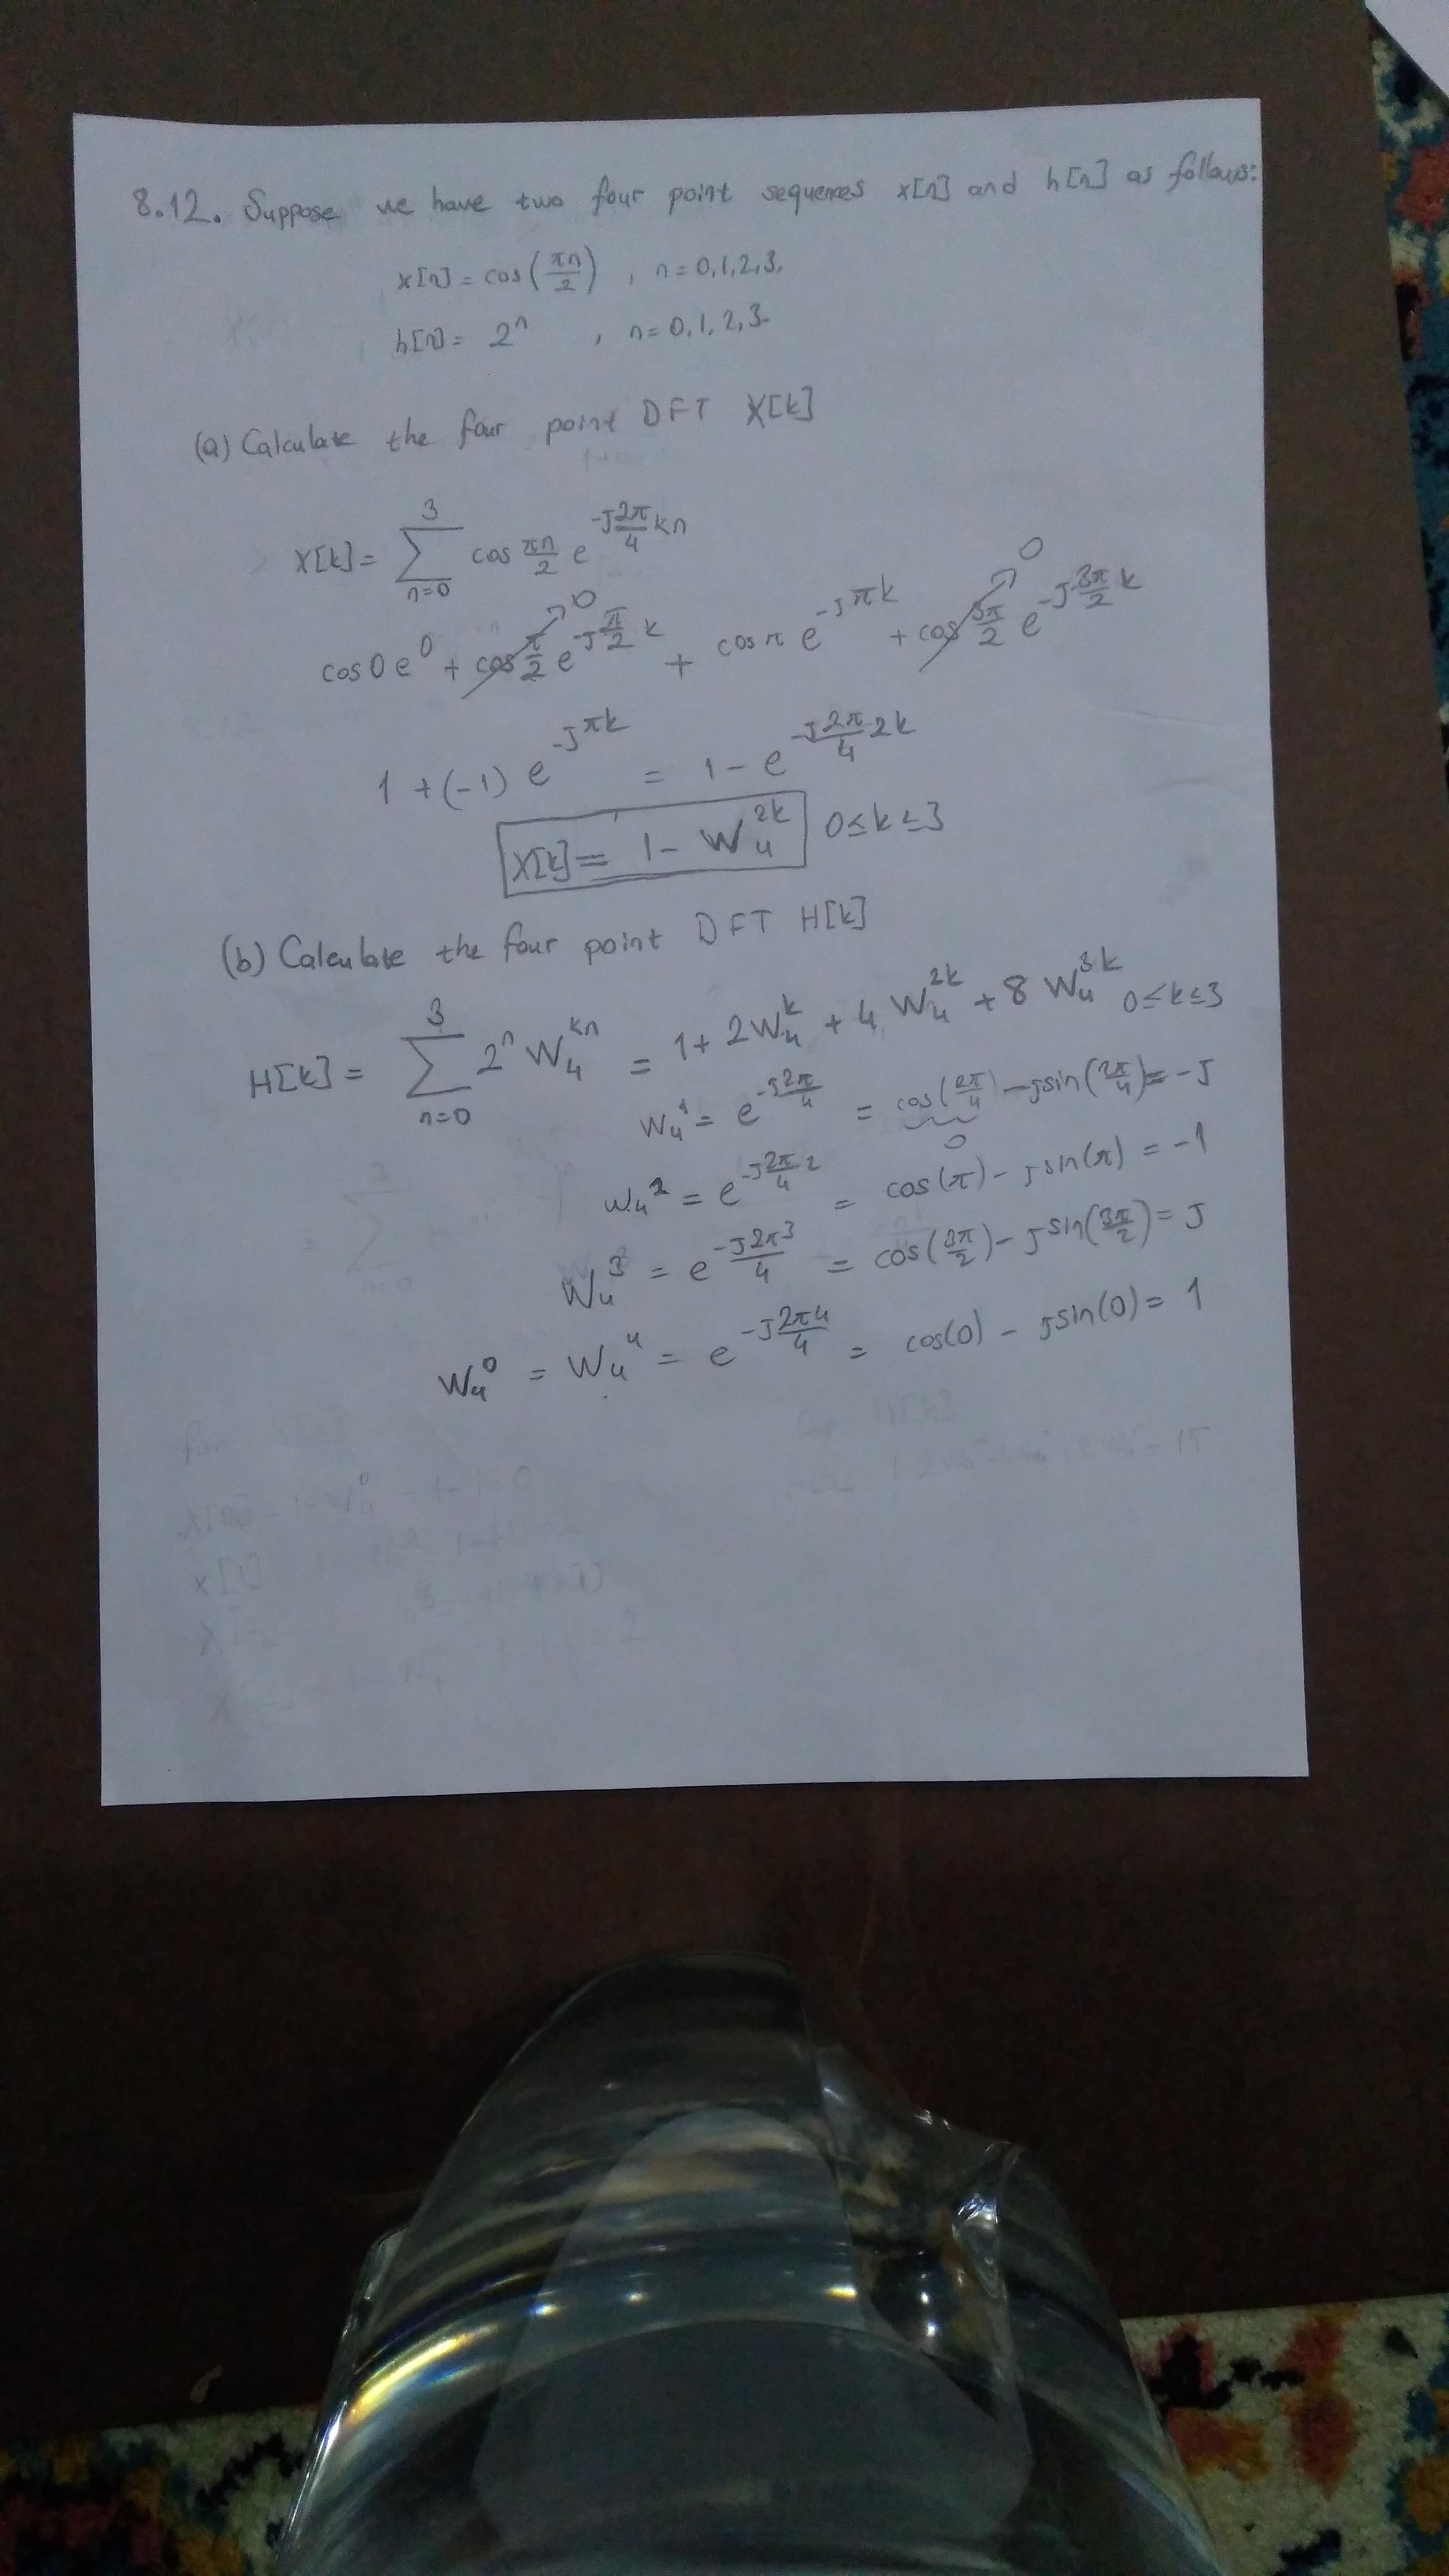 8.12. Suppose we have two four point sequences x[n] and h[n] as follows:
x[n] = cos(πn/2) , n = 0,1,2,3.
h[n] = 2^n , n = 0,1,2,3.
(a) Calculate the four point DFT X[k]
X[k] = Σ_{n=0}^{3} cos πn/2 e^{-J 2π/4 kn}
cos 0 e^0 + cos π/2 e^{-J π/2 k} ↗0 + cos π e^{-Jπk} + cos 3π/2 e^{-J 3π/2 k} ↗0
1 + (-1) e^{-Jπk} = 1 - e^{-J 2π/4 2k}
X[k] = 1 - W_4^{2k} 0≤k≤3
(b) Calculate the four point DFT H[k]
H[k] = Σ_{n=0}^{3} 2^n W_4^{kn} = 1 + 2W_4^k + 4 W_4^{2k} + 8 W_4^{3k} 0≤k≤3
W_4^1 = e^{-J 2π/4} = cos(2π/4) - Jsin(2π/4) = -J
0
W_4^2 = e^{-J 2π/4 2} = cos(π) - Jsin(π) = -1
W_4^3 = e^{-J 2π3/4} = cos(3π/2) - Jsin(3π/2) = J
W_4^0 = W_4^4 = e^{-J 2π4/4} = cos(0) - Jsin(0) = 1